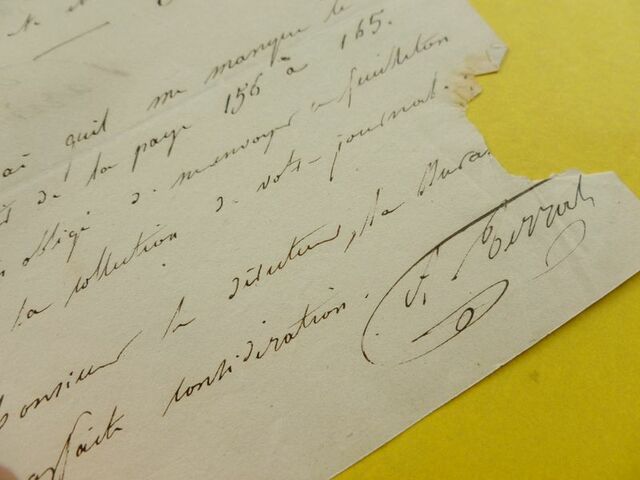 qu'il me manque le
de la page 156 à 165.
obligé de m'envoyer ce feuilleton
la collection de votre journal.
Monsieur le directeur, la
parfaite considération. A. Terrat